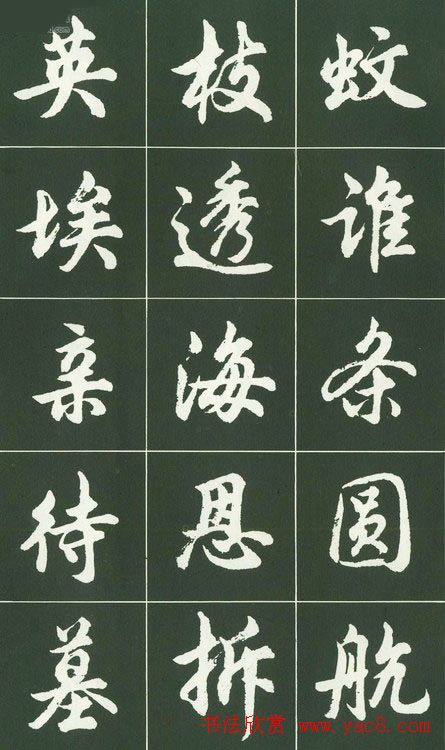 英 枝 蚊
埃 透 谁
亲 海 条
待 恩 圆
墓 拆 航
书法欣赏 www.yac8.com